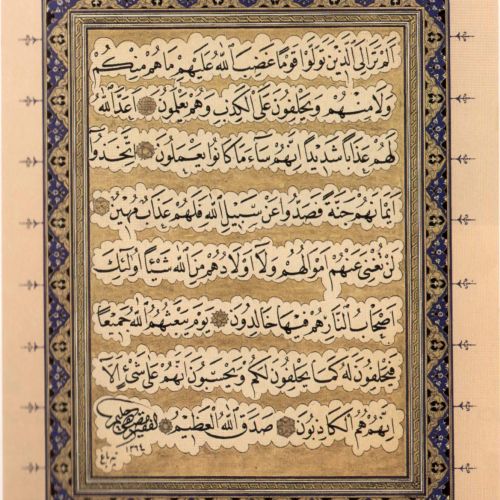 الم تر الى الذين تولوا قوما غضب الله عليهم ما هم منكم
ولا منهم ويحلفون على الكذب وهم يعلمون اعد الله
لهم عذابا شديدا انهم ساء ما كانوا يعملون اتخذوا
ايمانهم جنة فصدوا عن سبيل الله فلهم عذاب مهين
لن تغنى عنهم اموالهم ولا اولادهم من الله شيئا اولئك
اصحاب النار هم فيها خالدون يوم يبعثهم الله جميعا
فيحلفون له كما يحلفون لكم ويحسبون انهم على شئ الا
انهم هم الكاذبون صدق الله العظيم